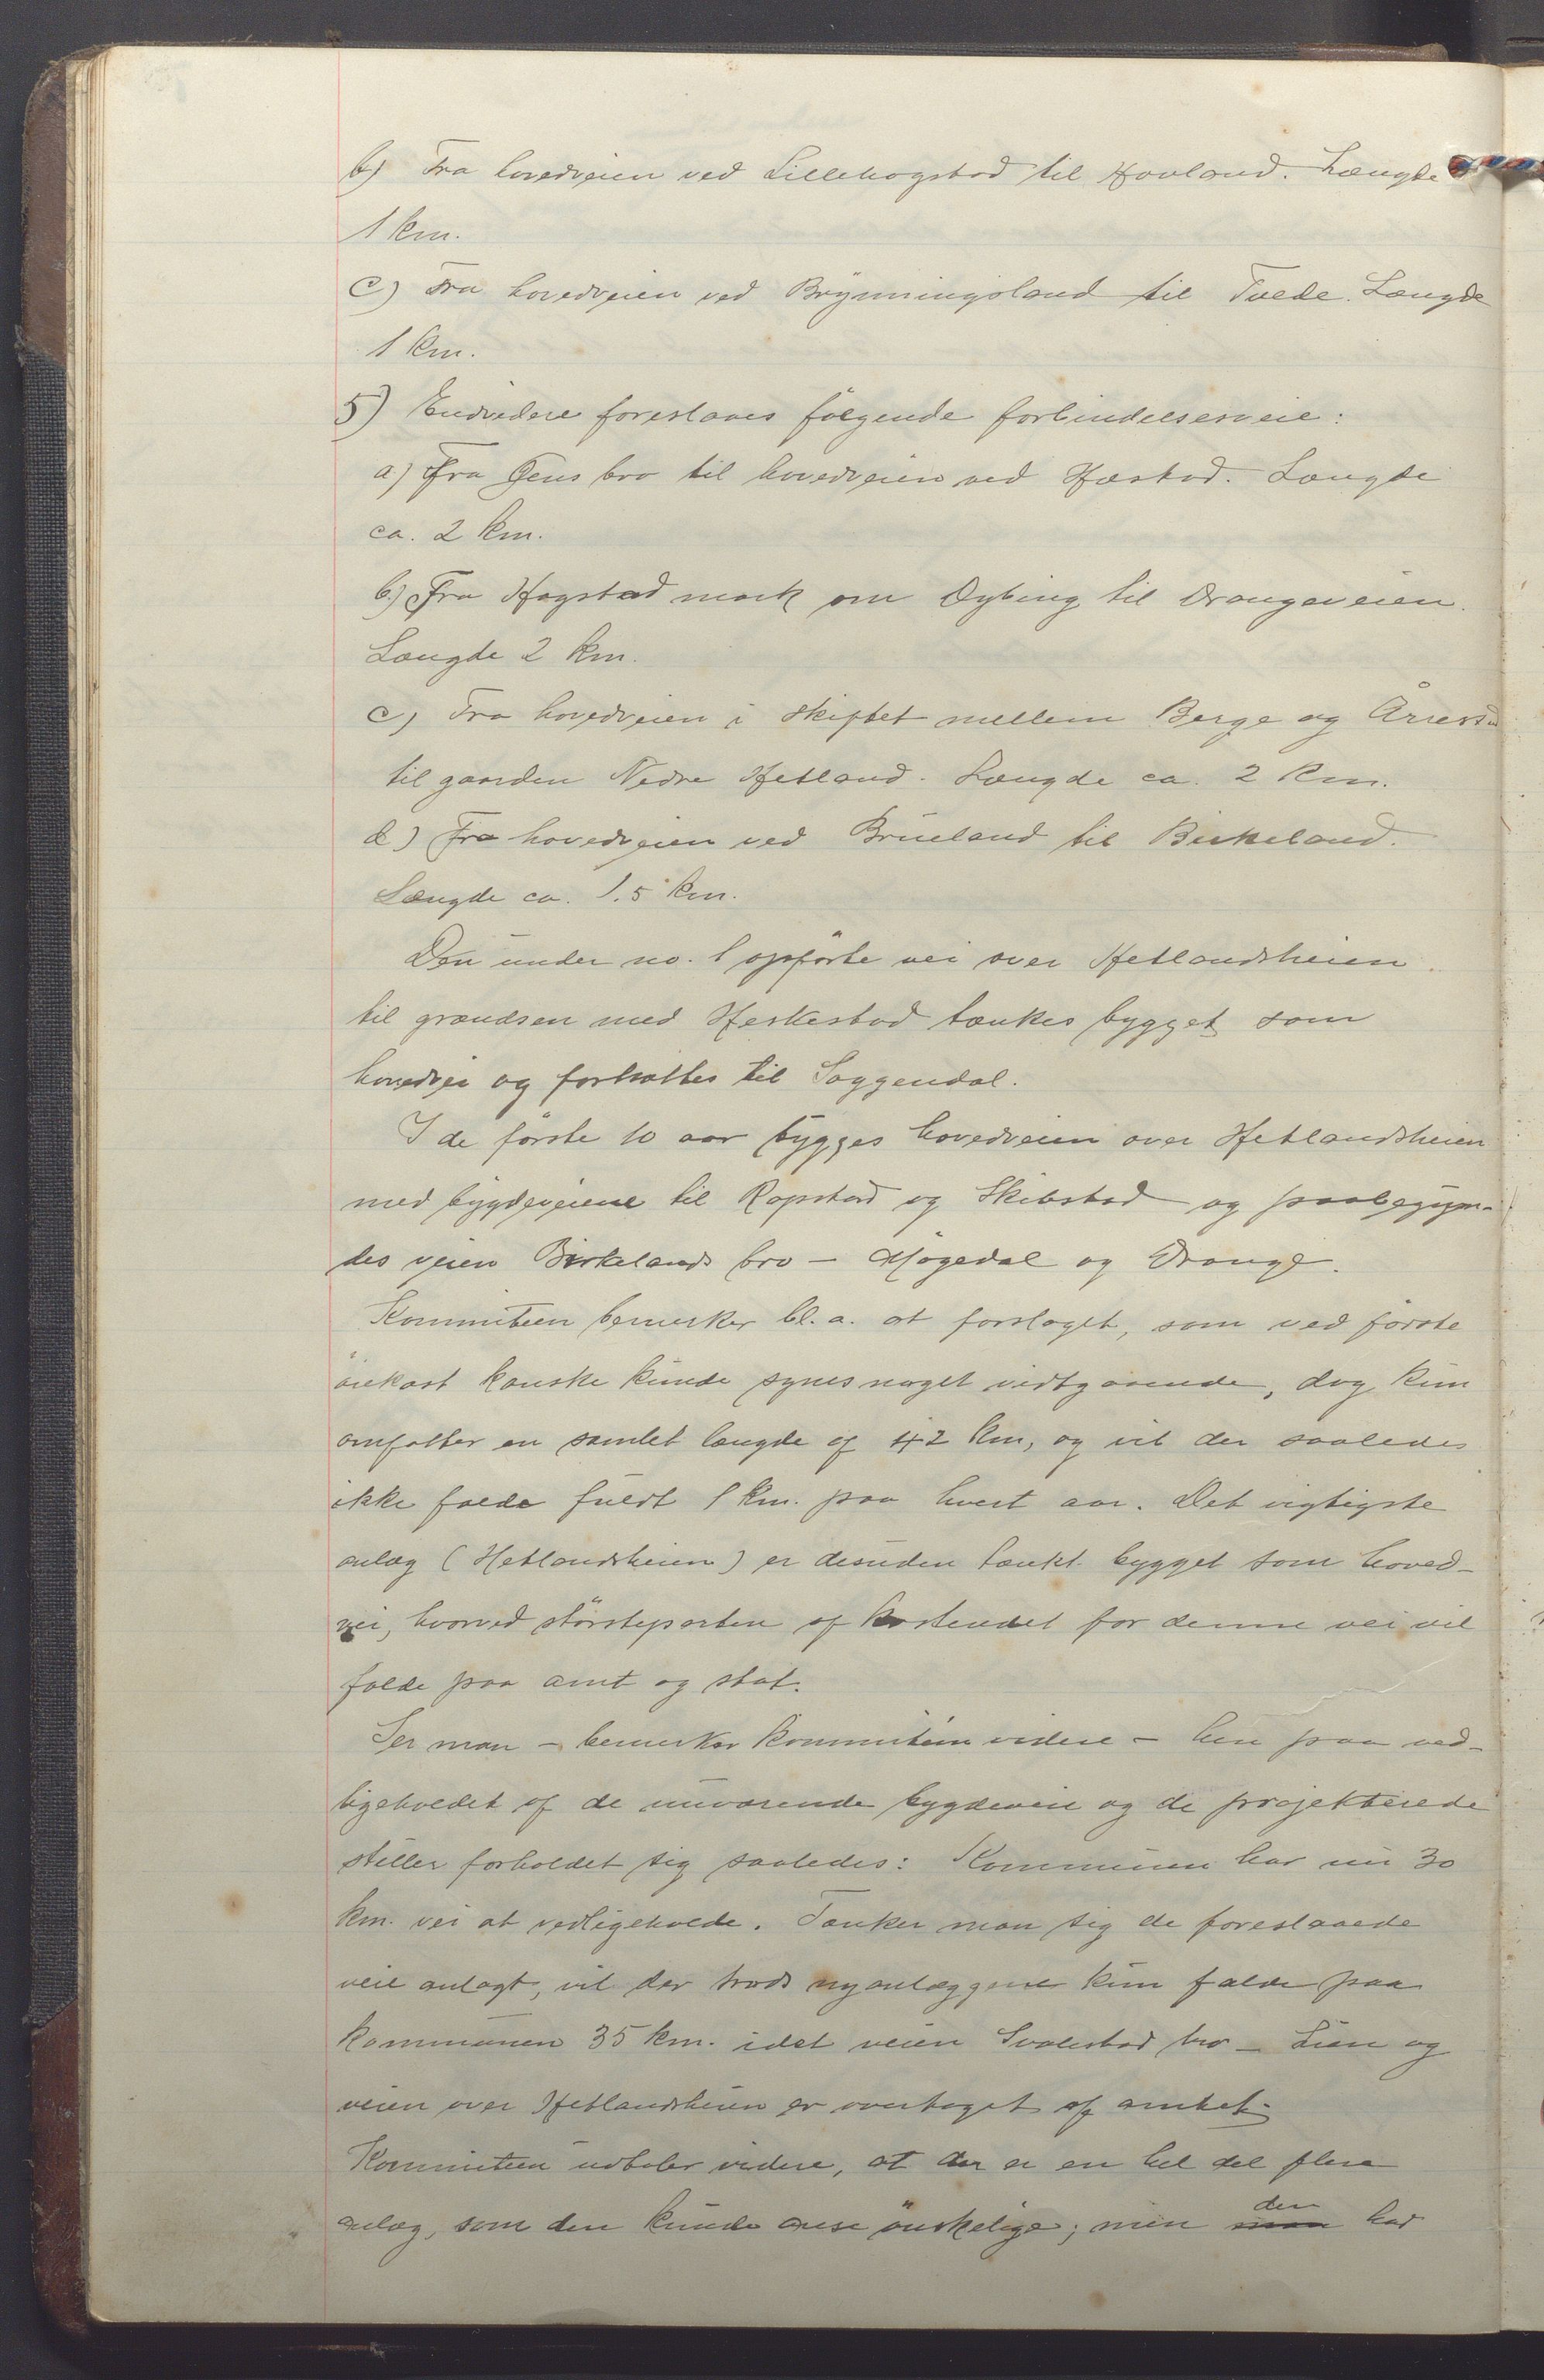 b) Fra hovedveien ved Lillehogstad til Hovland. Længde
1 km.
c) Fra hovedveien ved Brynningsland til Tvede. Længde
1 km.
5) Endvidere foreslaaes følgende forbindelsesveie:
a) Fra Fens bro til hovedveien ved Hæstad. Længde
ca. 2 km.
b.) Fra Hogstad mark om Dybing til Drangeveien.
Længde 2 km.
c) Fra hovedveien i skiftet mellem Berge og Årrestad
til gaarden Nedre Hetland. Længde ca. 2 km.
d) Fra hovedveien ved Brueland til Birkeland.
Længde ca. 1.5 km.
Den under no. 1 opførte vei over Hetlandsheien
til grændsen med Heskestad tænkes bygget som
hovedvei og fortsættes til Soggendal.
I de første 10 aar bygges hovedveien over Hetlandsheien
med bygdeveiene til Ropstad og Skibstad og paabegyn-
des veien Birkelands bro - Møgedal og Drange.
Kommiteen bemerker bl. a. at forslaget, som ved første
øiekast kanske kunde synes noget vidtgaaende, dog kun
omfatter en samlet længde af 42 km, og vil der saaledes
ikke falde fuldt 1 km. paa hvert aar. Det vigtigste
anlæg (Hetlandsheien) er desuden tænkt bygget som hoved-
vei, hvorved størsteparten af kostendet for denne vei vil
falde paa amt og stat.
Ser man - bemerker kommiteen videre - hen paa ved-
ligeholdet af de nuværende bygdeveie og de projekterede
stiller forholdet sig saaledes: Kommunen har nu 30
km. vei at vedligeholde. Tænker man sig de foreslaaede
veie anlagt, vil der trods nyanlæggene kun falde paa
kommunen 35 km. idet veien Svalestad bro - Lien og
veien over Hetlandsheien er overtaget af amtet.
Kommiteen udtaler videre, at der er en hel del flere
anlæg, som den kunde anse ønskelige; men man den har